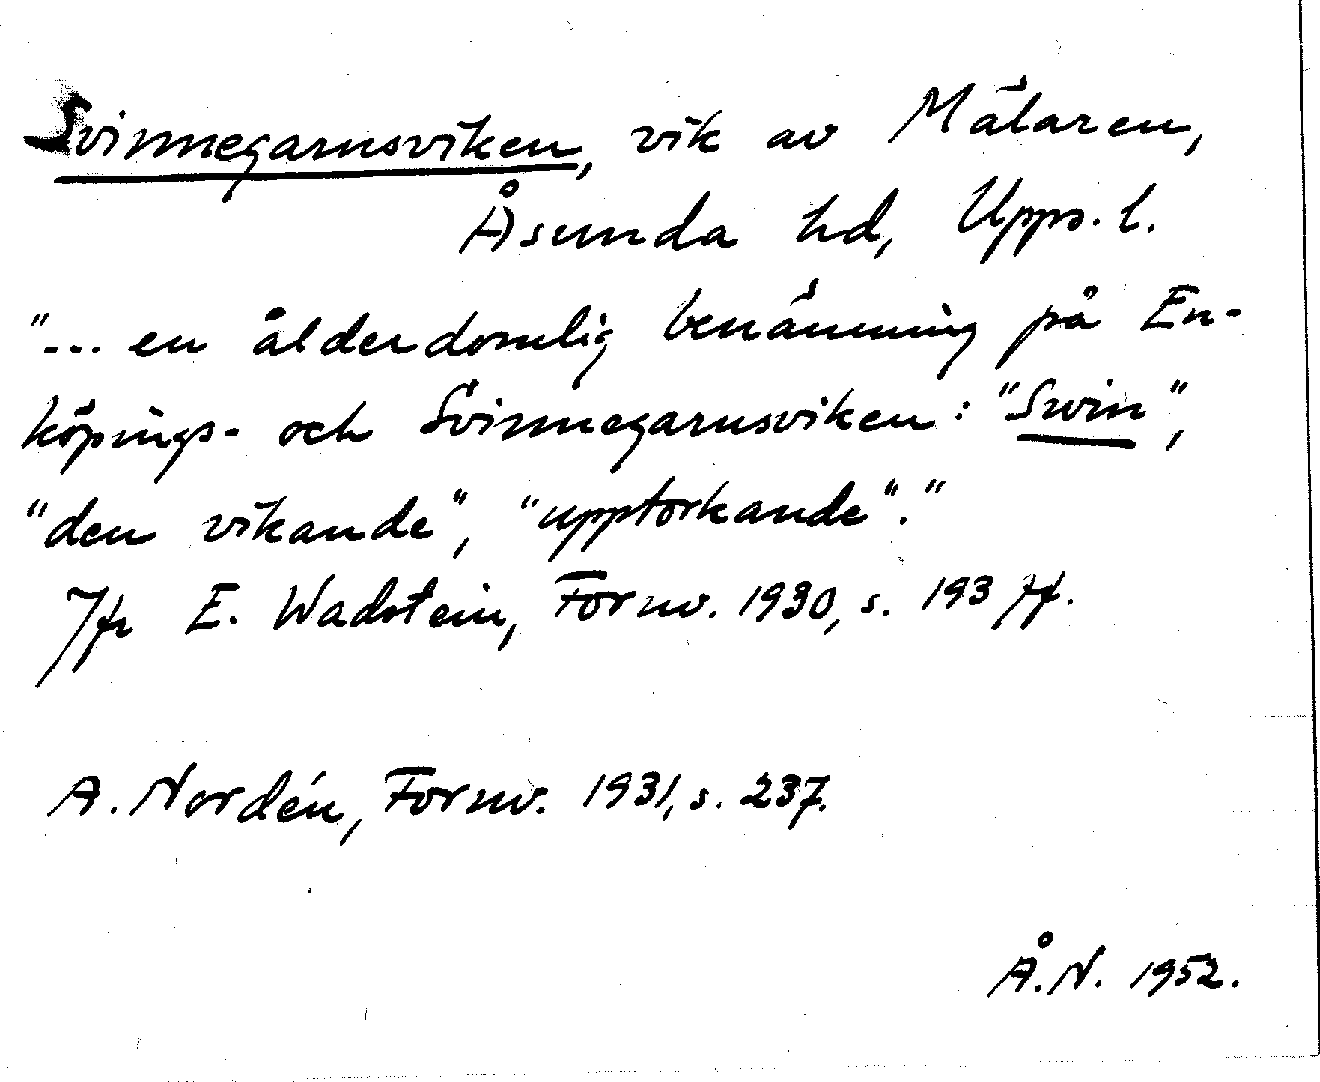 Svinnegarnsviken, vik av Mälaren,
Åsunda hd, Upps. l.
"... en ålderdomlig benämning på En-
köpings- och Svinnegarnsviken: "Swin",
"den vikande", "upptorkande"."
Jfr E. Wadstein, Fornv. 1930, s. 193 ff.
A. Nordén, Fornv. 1931, s. 237.
Å.N. 1952.